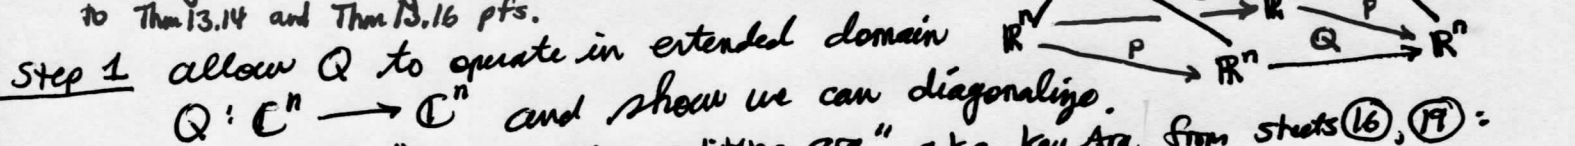 to Thm 13.14 and Thm 13.16 pfs.
Step 1 allow Q to operate in extended domain
Q : ℂⁿ → ℂⁿ and show we can diagonalize.
from sheets ⑯, ⑲ :
ℝⁿ → ℝ P
ℝⁿ P ℝⁿ Q ℝⁿ